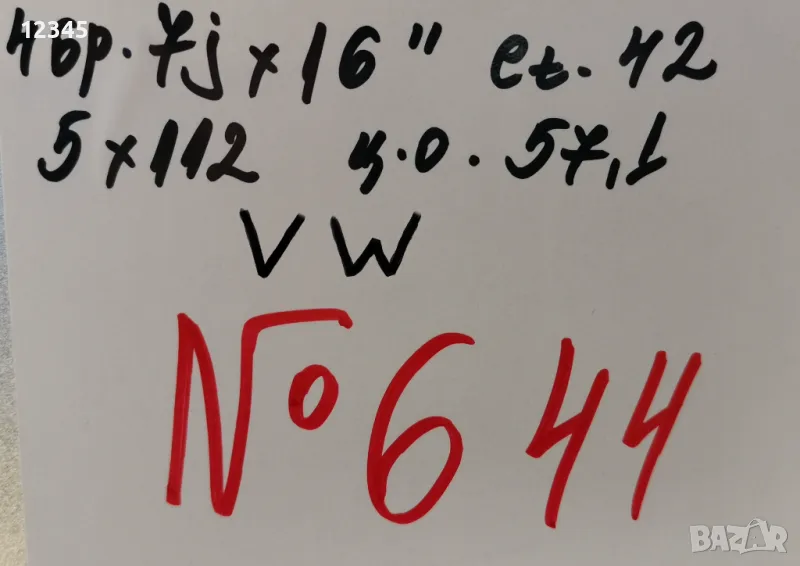 12345
4бр. 7j x 16" et. 42
5x112 ц.о. 57,1
VW
№ 644
BAZAR